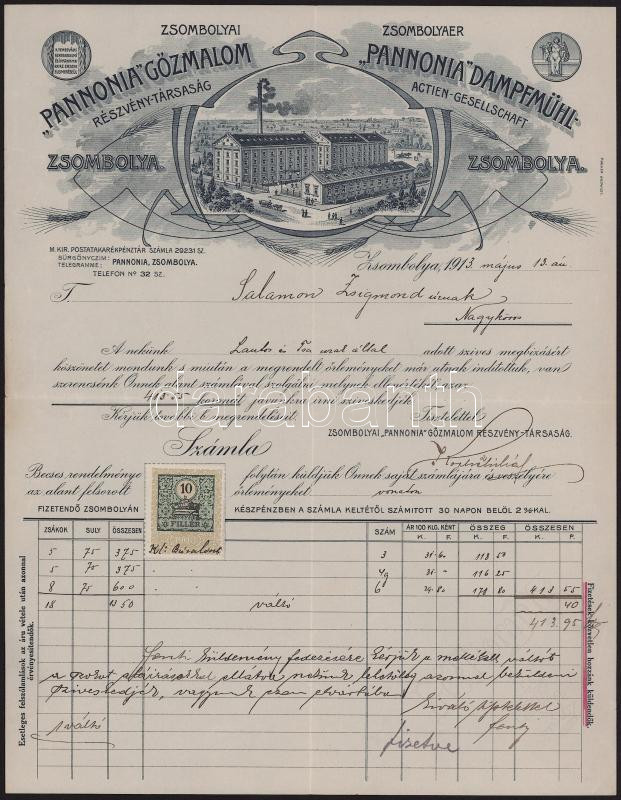 ZSOMBOLYAI
„PANNONIA” GŐZMALOM
RÉSZVÉNY-TÁRSASÁG
ZSOMBOLYA.
ZSOMBOLYAER
„PANNONIA” DAMPFMÜHL-
ACTIEN-GESELLSCHAFT
ZSOMBOLYA.
M. KIR. POSTATAKARÉKPÉNZTÁR SZÁMLA 29231 SZ.
SÜRGÖNYCZIM:
TELEGRAMME: PANNONIA, ZSOMBOLYA.
TELEFON No 32 SZ.
Zsombolya, 1913 május 13. án
T. Salamon Zsigmond úrnak
Nagykőrös
A nekünk urak által adott szives megbizásért
köszönetet mondunk s miután a megrendelt őrleményeket már utnak inditottuk, van
szerencsénk Önnek alant számlával szolgálni melynek ellenértékét azaz
413.55 koronát javunkra irni sziveskedjék.
Kérjük további b. megrendeléseit Tisztelettel
ZSOMBOLYAI „PANNONIA” GŐZMALOM RÉSZVÉNY-TÁRSASÁG.
Számla
Becses rendelménye folytán küldjük Önnek saját számlájára és veszélyére
az alant felsorolt őrleményeket vonaton
FIZETENDŐ ZSOMBOLYÁN KÉSZPÉNZBEN A SZÁMLA KELTÉTŐL SZÁMITOTT 30 NAPON BELÜL 2 %-KAL.
10
FILLÉR
ZSÁKOK SULY ÖSSZESEN SZÁM ÁR 100 KLG.KÉNT ÖSSZEG ÖSSZESEN
K. F. K. F. K. F.
5 75 375 3 31.6 118 50
5 75 375 4g 31.- 116 25
8 75 600 6 29.80 178 80 413 55
18 1350 váltó 40
413.95
Fenti küldemény fedezésére kérjük a mellékelt váltót
azonnal beküldeni
sziveskedjék, vagyunk ezen elvárásában
Kiváló tisztelettel
fenti
1 váltó
fizetve
Esetleges felszólamlások az áru vétele után azonnal
érvényesitendők.
Fizetések közvetlen hozzánk küldendők.
darabanth